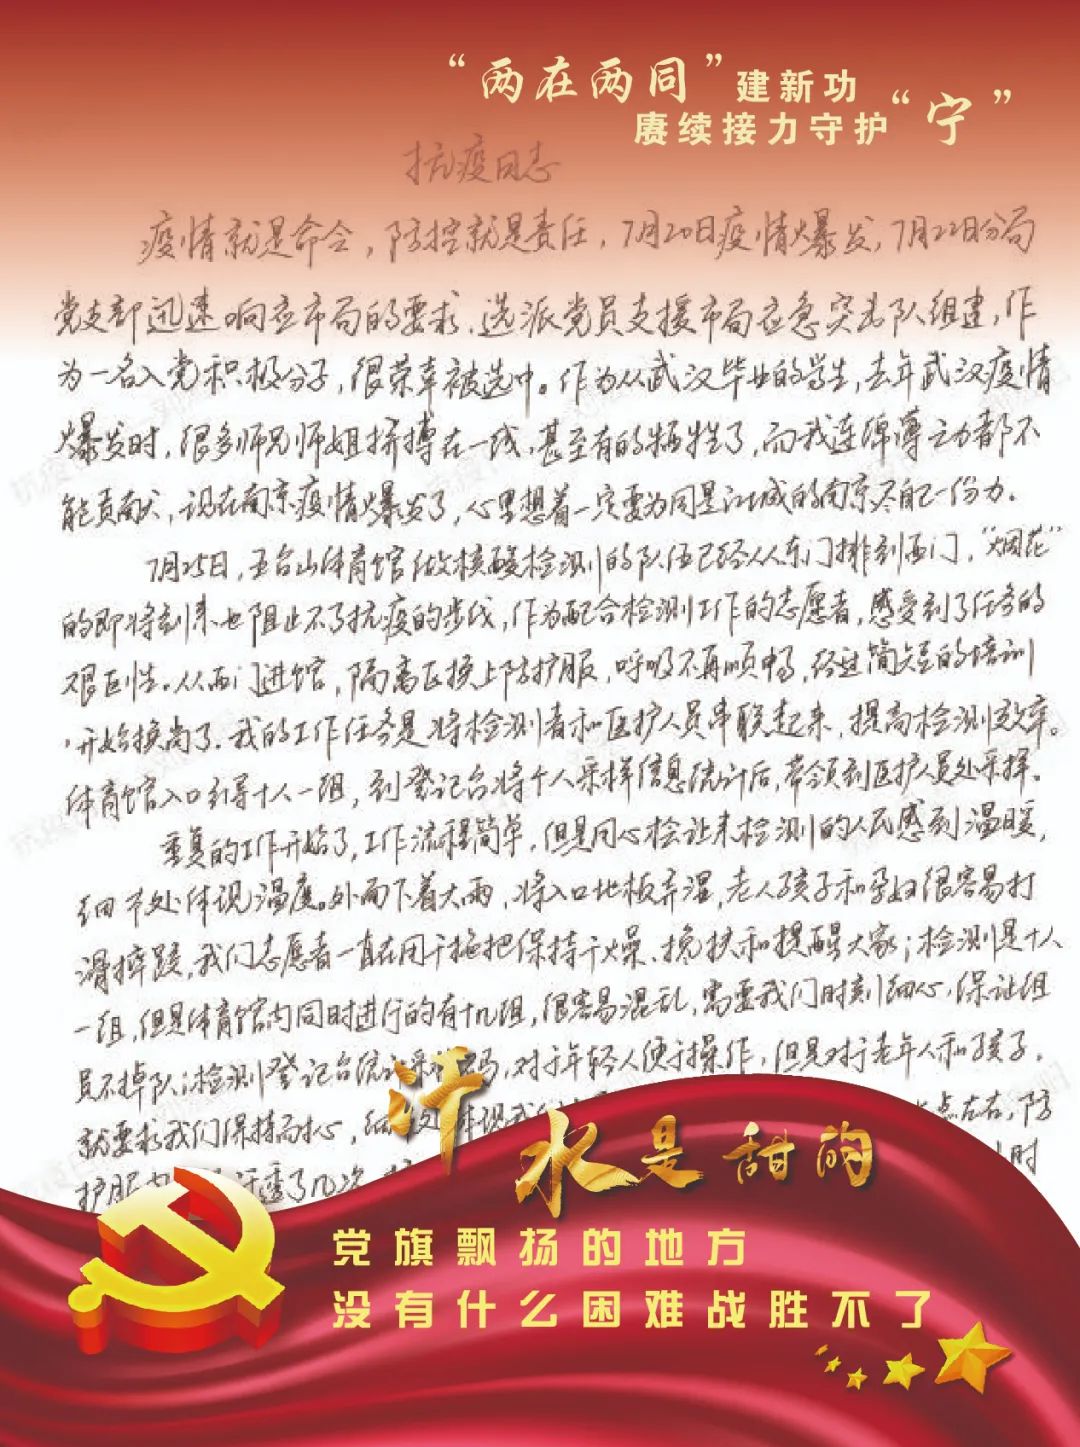 “两在两同”建新功
赓续接力守护“宁”
抗疫日志
疫情就是命令，防控就是责任，7月20日疫情爆发，7月22日分局
党支部迅速响应市局的要求，选派党员支援市局应急突击队组建，作
为一名入党积极分子，很荣幸被选中。作为从武汉毕业的学生，去年武汉疫情
爆发时，很多师兄师姐拼搏在一线，甚至有的牺牲了，而我连绵薄之力都不
能贡献，现在南京疫情爆发了，心里想着一定要为同是江城的南京尽自己一份力。
7月25日，五台山体育馆做核酸检测的队伍已经从东门排到西门，“烟花”
的即将到来也阻止不了抗疫的步伐，作为配合检测工作的志愿者，感受到了任务的
艰巨性。从西门进馆，隔离区换上防护服，呼吸不再顺畅，经过简短的培训
，开始换岗了。我的工作任务是将检测者和医护人员串联起来，提高检测效率。
体育馆入口引导十人一组，到登记台将个人采样信息统计后，带领到医护人员处采样。
重复的工作开始了，工作流程简单，但是同心检让来检测的人民感到温暖，
细节处体现温度。外面下着大雨，将入口地板弄湿，老人孩子和孕妇很容易打
滑摔跤，我们志愿者一直在用干拖把保持干燥、搀扶和提醒大家；检测是十人
一组，但是体育馆内同时进行的有十几组，很容易混乱，需要我们时刻细心，保证组
员不掉队；检测登记台统计采 码，对于年轻人便于操作，但是对于老年人和孩子，
就要求我们保持耐心，细 体现我们 点左右，防
护服 汗透了几次 时
汗水是甜的
党旗飘扬的地方
没有什么困难战胜不了